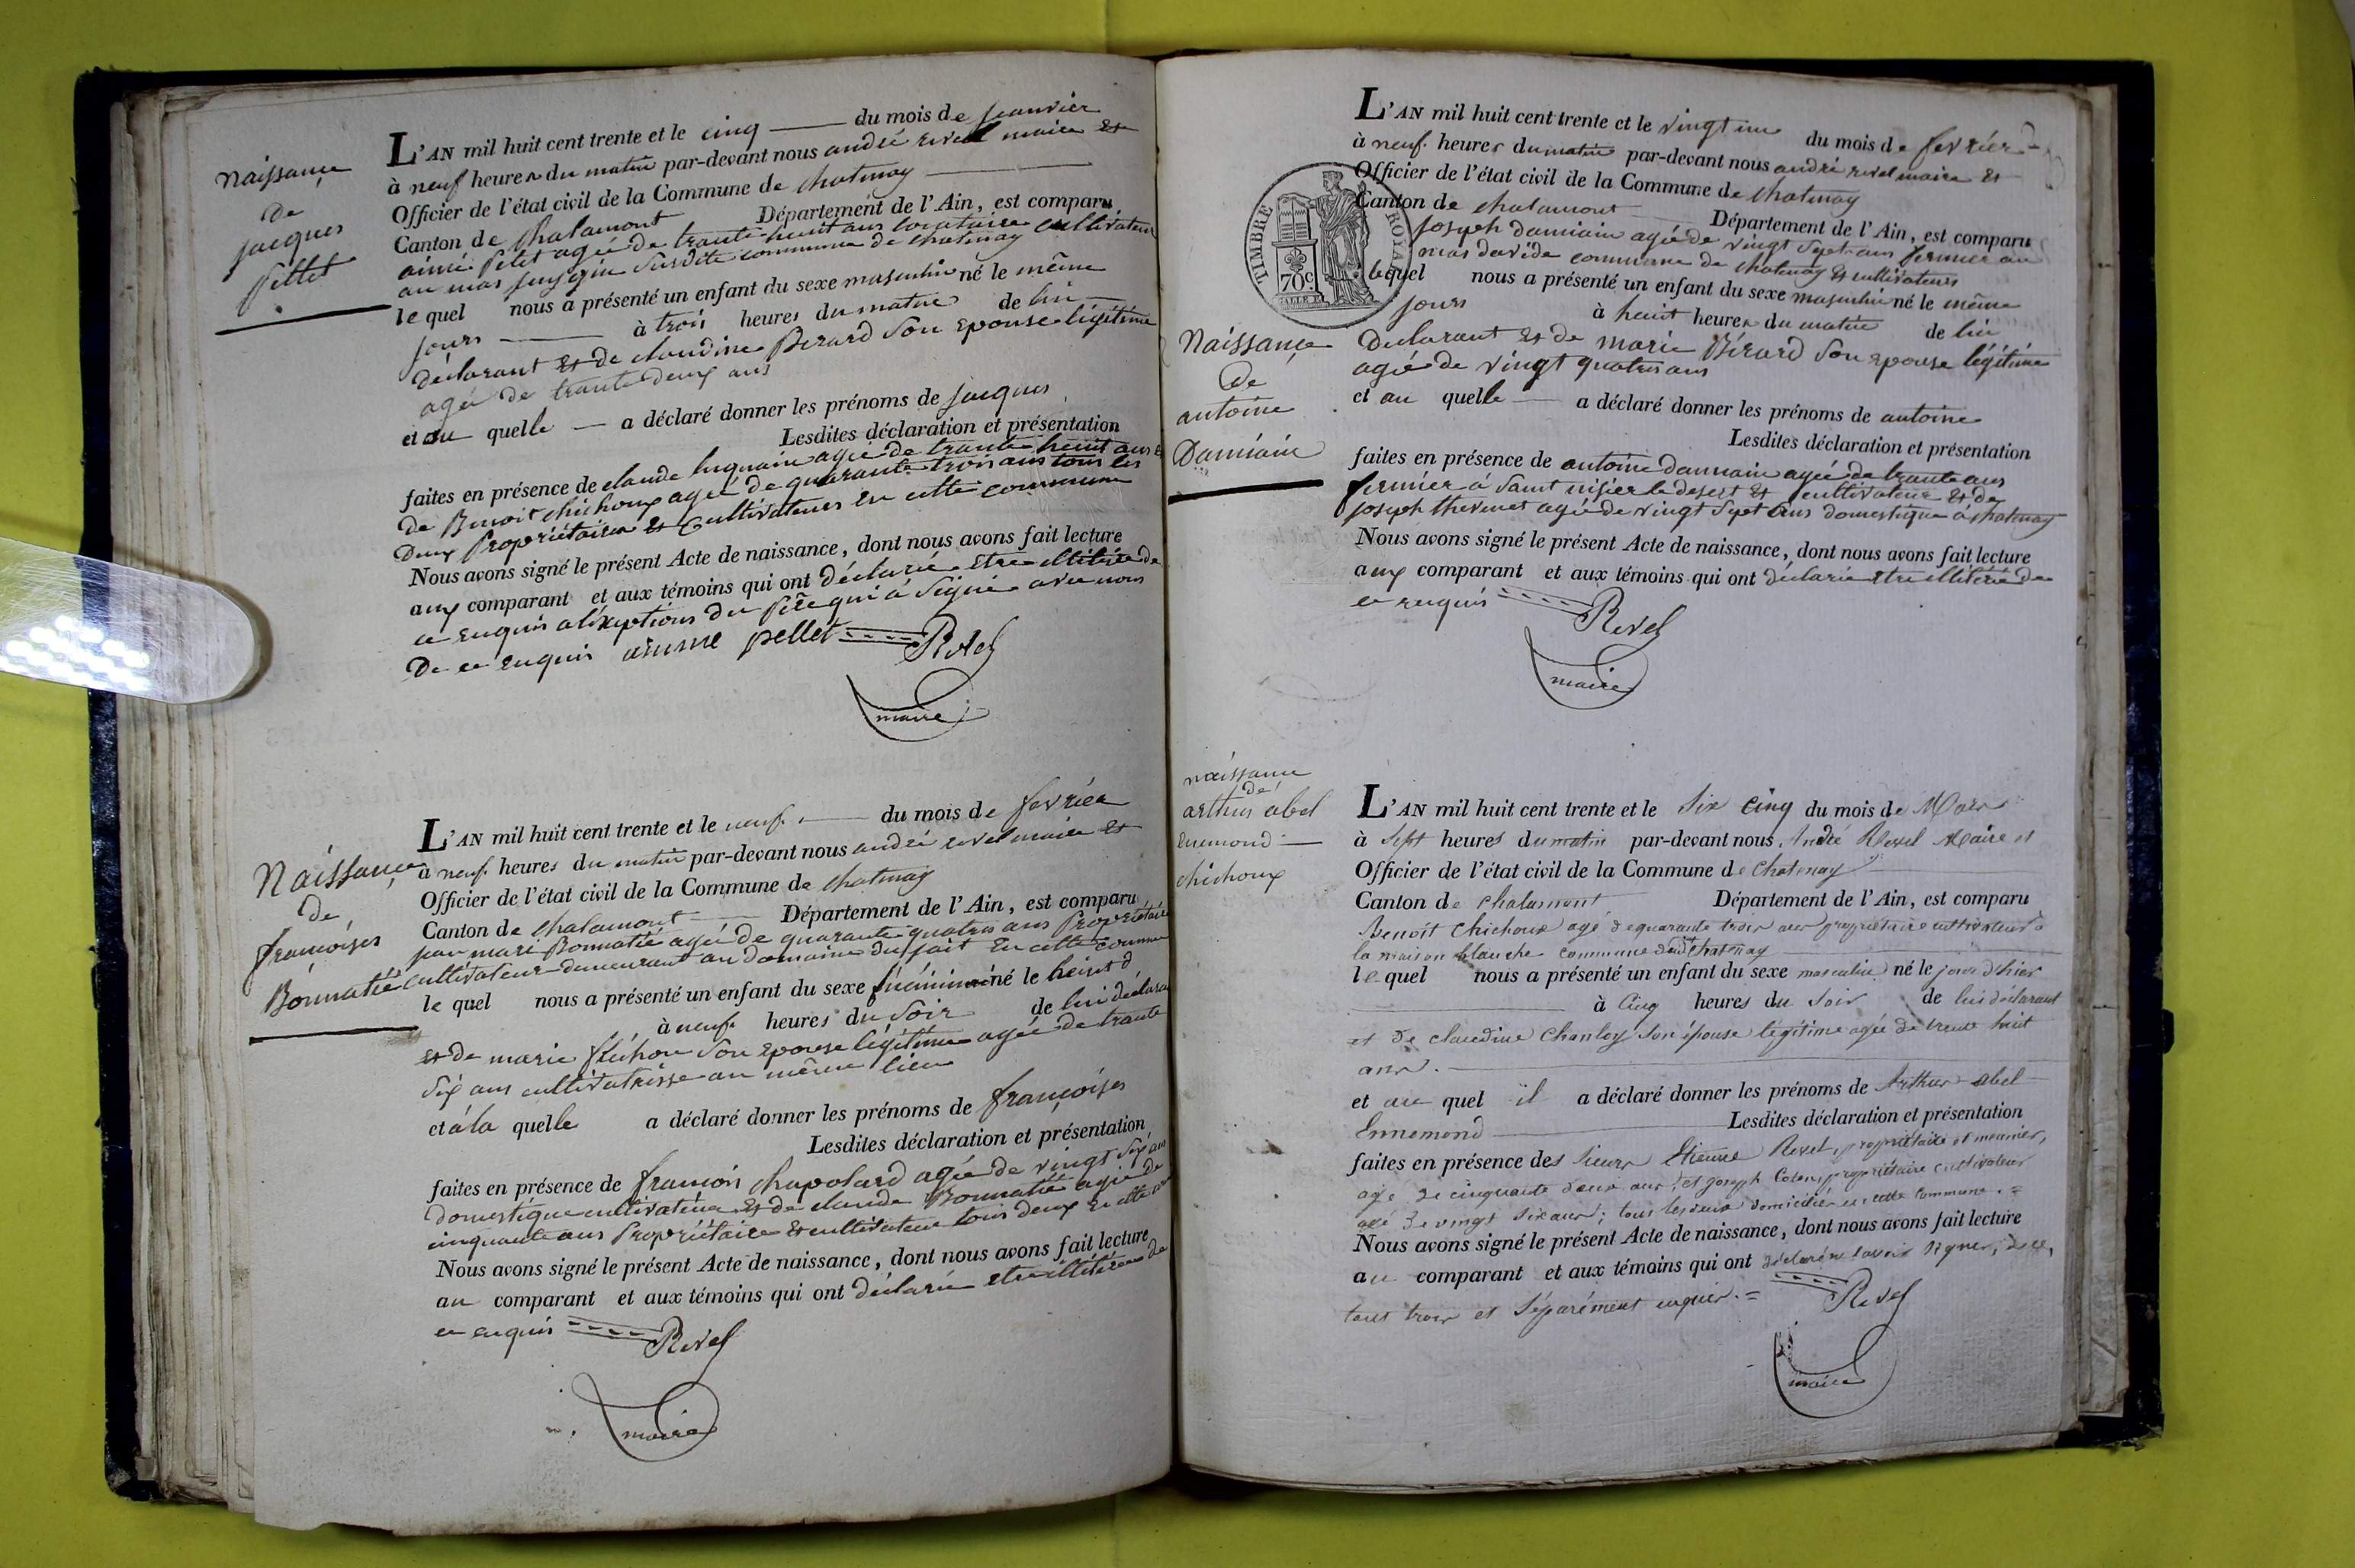 naissance
de
jacques
pellet
L'AN mil huit cent trente et le cinq du mois de janvier
à neuf heures du matin par-devant nous andré revel maire et
Officier de l'état civil de la Commune de chatenay
Canton de chalamont Département de l'Ain, est comparu
aimé pelet agée de trante-heuit ans locataire cultivateur
au mas susdite commune de chatenay
le quel nous a présenté un enfant du sexe masculin né le même
jours à trois heures du matin de lui
déclarant et de claudine Berard son epouse légitime
agée de trante deux ans
et au quelle a déclaré donner les prénoms de jacques
Lesdites déclaration et présentation
faites en présence de claude agée de trante heuit ans et
de Benoit chichoux agée de quarante trois ans tous les
deux propriétaires et cultivateurs en cette commune
Nous avons signé le présent Acte de naissance, dont nous avons fait lecture
aux comparant et aux témoins qui ont déclarée etre illitérée de
ce enquis a l'exeptions du père qui à signée avec nous
de ce enquis aimme pellet Revel
maire
Naissance
de
françoises
Bonnatié
L'AN mil huit cent trente et le neuf du mois de fevrier
à neuf heures du matin par-devant nous andré revel maire et
Officier de l'état civil de la Commune de chatenay
Canton de chalamont Département de l'Ain, est comparu
jean mari Bonnatié agée de quarante quatres ans Propriétaire
cultivateur demeurant au domaine du en cette commune
le quel nous a présenté un enfant du sexe féminin né le heuit d
à neuf heures du soir de lui déclarant
et de marie fléchon son epouse légitime agée de trante
six ans cultivatrisse au même lieu
et à la quelle a déclaré donner les prénoms de françoises
Lesdites déclaration et présentation
faites en présence de françois chapolard agée de vingt six ans
domestique cultivateur et de claude Bonnatié agée de
cinquante ans Propriétaire et cultivateur tous deux en cette
Nous avons signé le présent Acte de naissance, dont nous avons fait lecture
au comparant et aux témoins qui ont déclarée etre illitérée de
ce enquis Revel
maire
TIMBRE ROYAL
70c
L'AN mil huit cent trente et le vingt un du mois de fevrier
à neuf heures du matin par-devant nous andré revel maire et
Officier de l'état civil de la Commune de chatenay
Canton de chalamont Département de l'Ain, est comparu
joseph damiain agée de vingt sept ans fermier au
mas commune de chatenay et cultivateurs
lequel nous a présenté un enfant du sexe masculin né le même
jours à heuit heures du matin de lui
Naissance
de
antoine
Damiain
Déclarant et de marie Bérard son epouse légitime
agée de vingt quatres ans
et au quelle a déclaré donner les prénoms de antoine
Lesdites déclaration et présentation
faites en présence de antoine damiain agée de trante ans
fermier à saint nisier le desert et cultivateur et de
joseph thevenet agée de vingt sept ans domestique à chatenay
Nous avons signé le présent Acte de naissance, dont nous avons fait lecture
aux comparant et aux témoins qui ont déclarée etre illitérée de
ce enquis Revel
maire
naissance
de
arthur abel
ennemond
chichoux
L'AN mil huit cent trente et le Six cinq du mois de Mars
à Sept heures du matin par-devant nous, André Revel Maire et
Officier de l'état civil de la Commune de Chatenay
Canton de Chalamont Département de l'Ain, est comparu
Benoît Chichoux agé de quarante trois ans propriétaire cultivateur à
la maison blanche commune dud. Chatenay
le quel nous a présenté un enfant du sexe masculin né le jour d'hier
à Cinq heures du Soir de lui déclarant
et de claudine Chanloy son épouse légitime agée de trente huit
ans.
et au quel il a déclaré donner les prénoms de Arthur abel
Ennemond Lesdites déclaration et présentation
faites en présence des Sieurs Etienne Revel, propriétaire et meunier,
agé de cinquante deux ans; et joseph Colon, propriétaire cultivateur
agé de vingt six ans; tous les deux domiciliés en cette Commune.
Nous avons signé le présent Acte de naissance, dont nous avons fait lecture
au comparant et aux témoins qui ont déclaré ne savoir signer, de ce,
tous trois et séparément enquis. Revel
maire